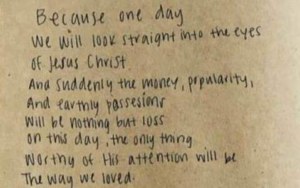 Because one day
We will look straight into the eyes
of Jesus Christ
And suddenly the money, popularity,
And earthly possesions
Will be nothing but loss
on this day, the only thing
Worthy of His attention will be
The way we loved.